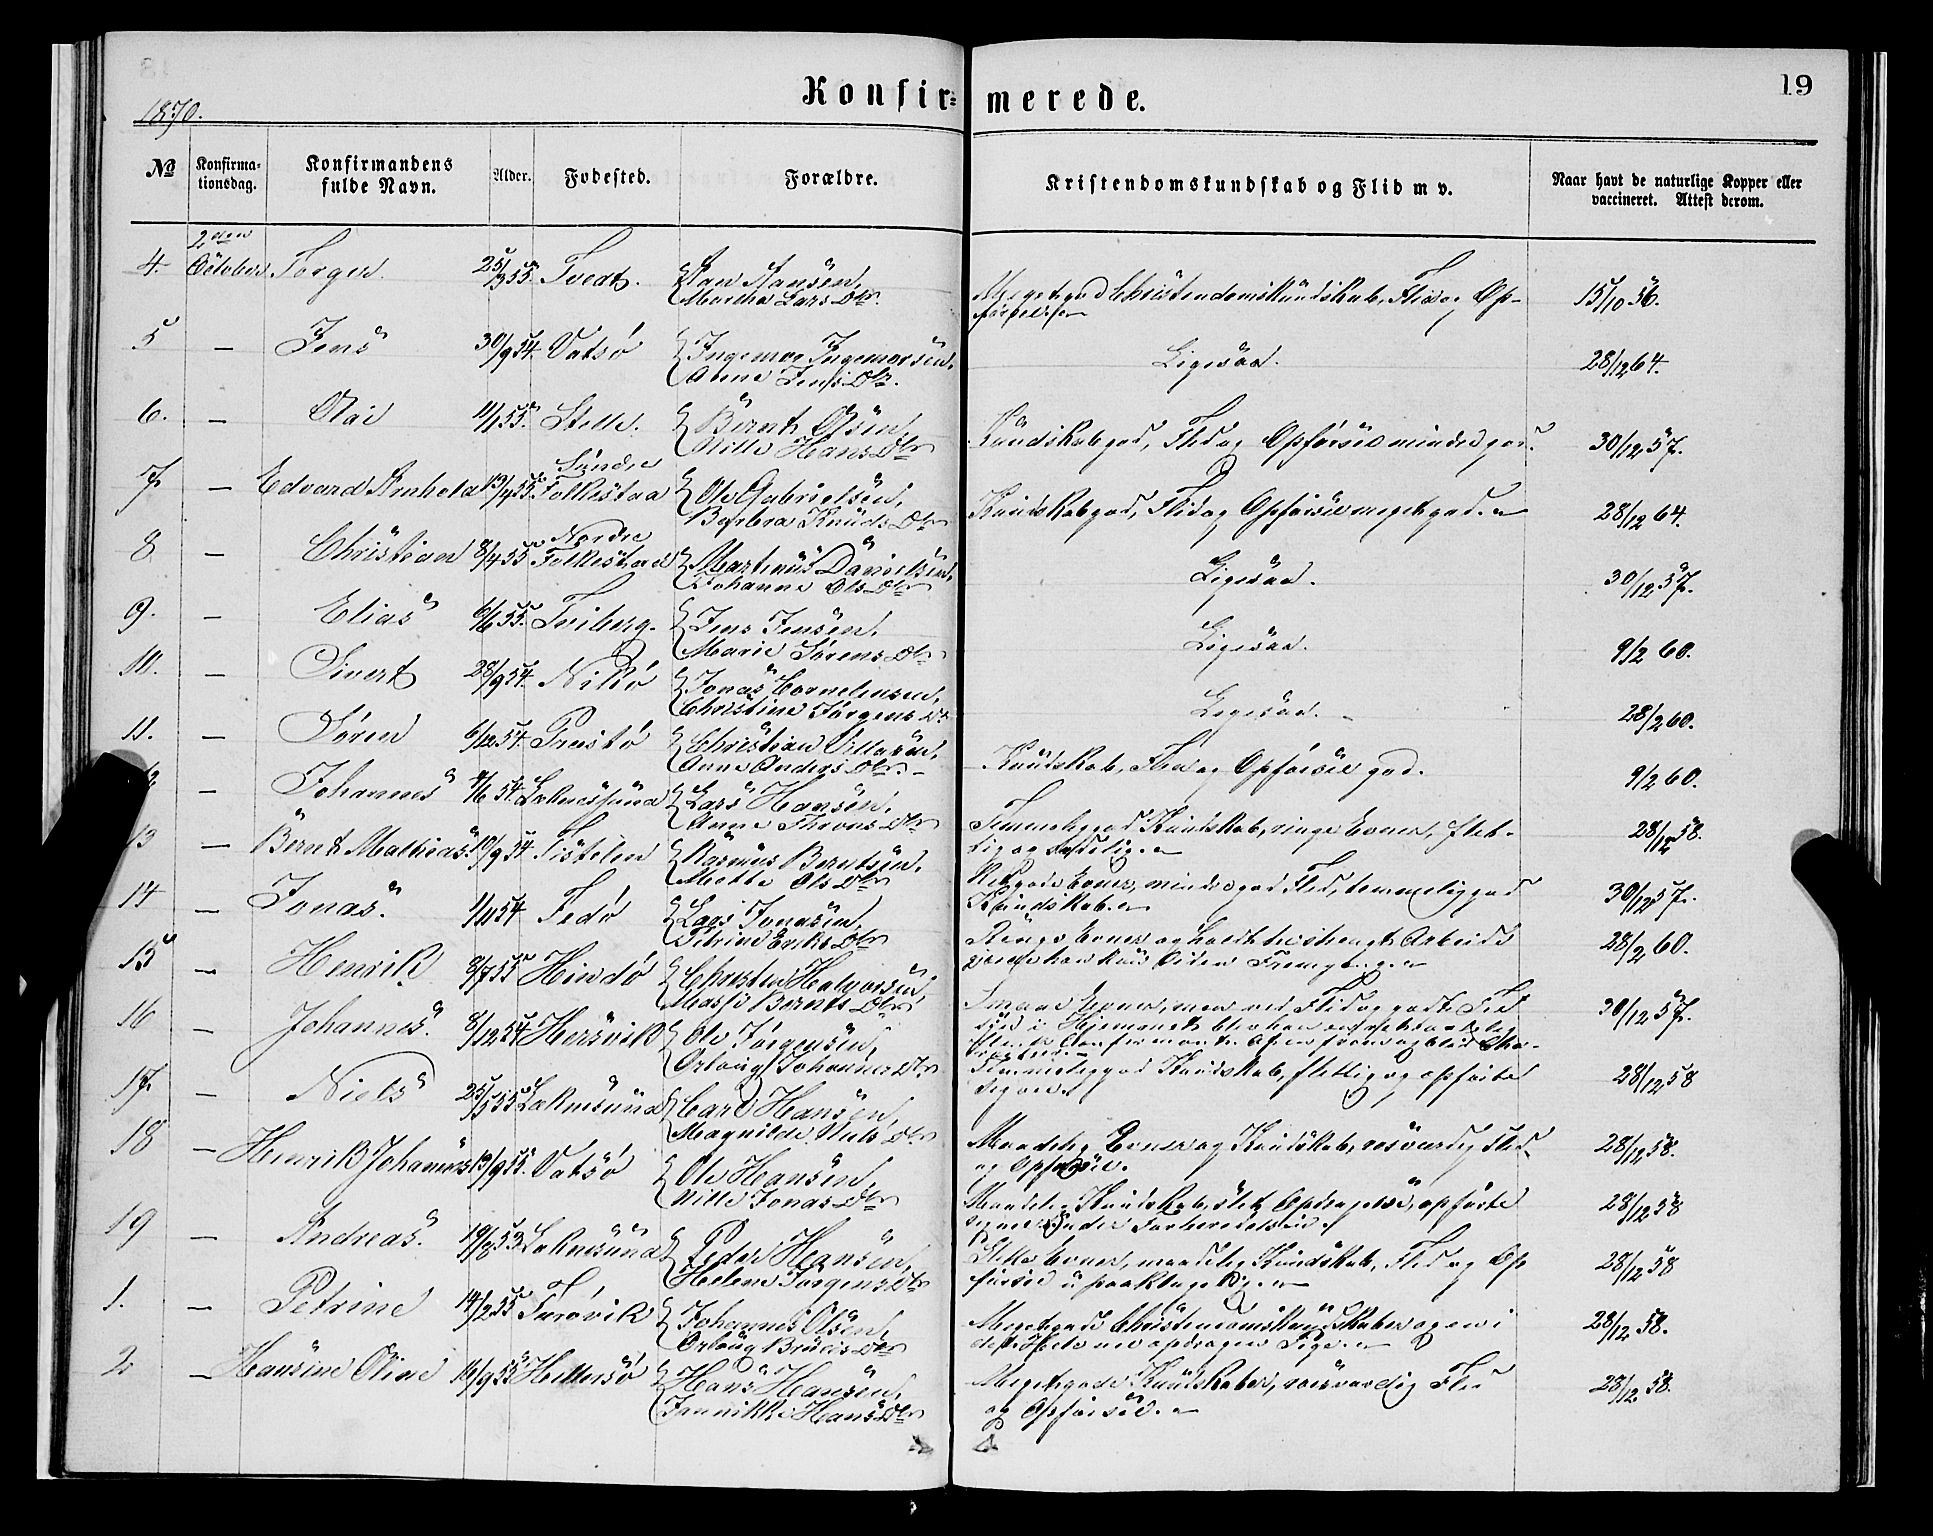 1870.
Konfir=
merede.
19
No
Konfirma-
tionsdag.
Konfirmandens
fulde Navn.
Alder.
Fødested.
Forældre.
Kristendomskundskab og Flid m v.
Naar havt de naturlige Kopper eller
vaccineret. Attest derom.
4. 2den October Torger. 25/3 55. Tveat. Martha Lars Dtr. 15/10 56.
Meget god Christendomskundskab, Flid og Op-
førsel
5 – Jens 30/9 54. Vatsø Ingemar Ingemarsen, Anne Jens Dtr. Ligesaa. 28/12 64.
6. – Olai 11/1 55. Stelle. Bernt Olsen, Nille Hans Dtr Kundskab god, Flid og Opførsel mindre god. 30/12 57.
7. – Edvard Arnhold 13/4 55. Søndre Folkestad Ole Gabrielsen, Barbra Knuds Dtr Kundskab god, Flid og Opførsel meget god. 28/12 64.
8 – Christian 8/4 55 Nordre Folkestad Martinus Danielsen, Johanne Ols Dtr Ligesaa. 30/12 57.
9. – Elias 6/6 55. Tviberg. Jens Jensen. Marie Sørens Dtr Ligesaa. 9/2 60.
10. – Sivert 28/9 54. Nilsø Jonas Cornelensen, Christine Jørgens Dtr Ligesaa. 28/2 60.
11. – Søren 6/12 54. Prestø Christian Villasen, Anne Anders Dtr. Kundskab, Flid og Opførsel god. 9/2 60.
– Johannes Laknesund Lars Hansen, Anne Throns Dtr Temmelig god Kundskab, ringe Evner, flit-
tig og sædelig. 28/12 58.
13 – Bernt Mathias. 10/9 54 Fistelen Rasmus Berntsen, Mette Ols Dtr gode Evner, mindre god Flid, temmelig god
Kundskab. 30/12 57.
14 – Jonas. 1/11 54 Fedø Lars Jonasen, Petrine Eriks Dtr Ringe Evner og holdt til strengt Arbeide
28/2 60.
15 – Henrik 8/7 55 Hindø Christen Halvorsen, Bernts Dtr Smaae Evner, men ved Flid og godt
30/12 57.
16 – Johannes. 8/12 54 Hersvik Ole Jørgensen, Orloug Johannes Dtr. Temmelig god Kundskab, flittig og opførte
sig vel 28/12 58
17. – Niels 25/5 55 Laknesund Carl Hansen, Magnilde Niels Dtr Maadelig Evner og Kundskab, rosværdig Flid
og Opførsel. 28/12 58.
18 – Henrik Johannes 13/9 55. Vatsø Ole Hansen, Nille Jonas Dtr Maadelig Kundskab, slet Opdragelse, opførte
sig under Forberedelsen. 28/12 58
19 – Andreas. 19/8 53 Laknesund Peder Hansen, Helene Jørgens Dtr Slette Evner, maadelig Kundskab, Flid og Op
førsel upaaklagelig. 28/12 58
1. – Petrine 14/2 55 Turøvik Johannes Olsen, Orloug Bruns Dtr Meget gode Christendomskundskaber og en i
det Hele vel opdragen Pige. 28/12 58.
2 – Hansine Oline 16/9 55 Hillersø Hans Hansen, Jannikke Hans Dtr Meget gode Kundskaber, rosværdig Flid
og Opførsel. 28/12 58.